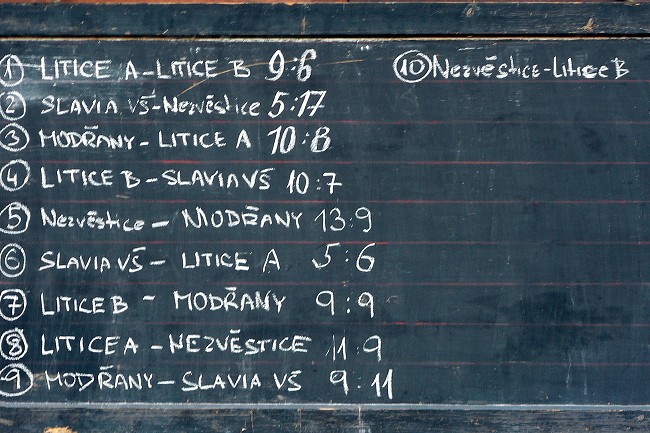 ① LITICE A - LITICE B 9:6
② SLAVIA VŠ - Nezvěstice 5:17
③ MODŘANY - LITICE A 10:8
④ LITICE B - SLAVIA VŠ 10:7
⑤ Nezvěstice - MODŘANY 13:9
⑥ SLAVIA VŠ - LITICE A 5:6
⑦ LITICE B - MODŘANY 9:9
⑧ LITICE A - NEZVĚSTICE 11:9
⑨ MODŘANY - SLAVIA VŠ 9:11
⑩ Nezvěstice - Litice B